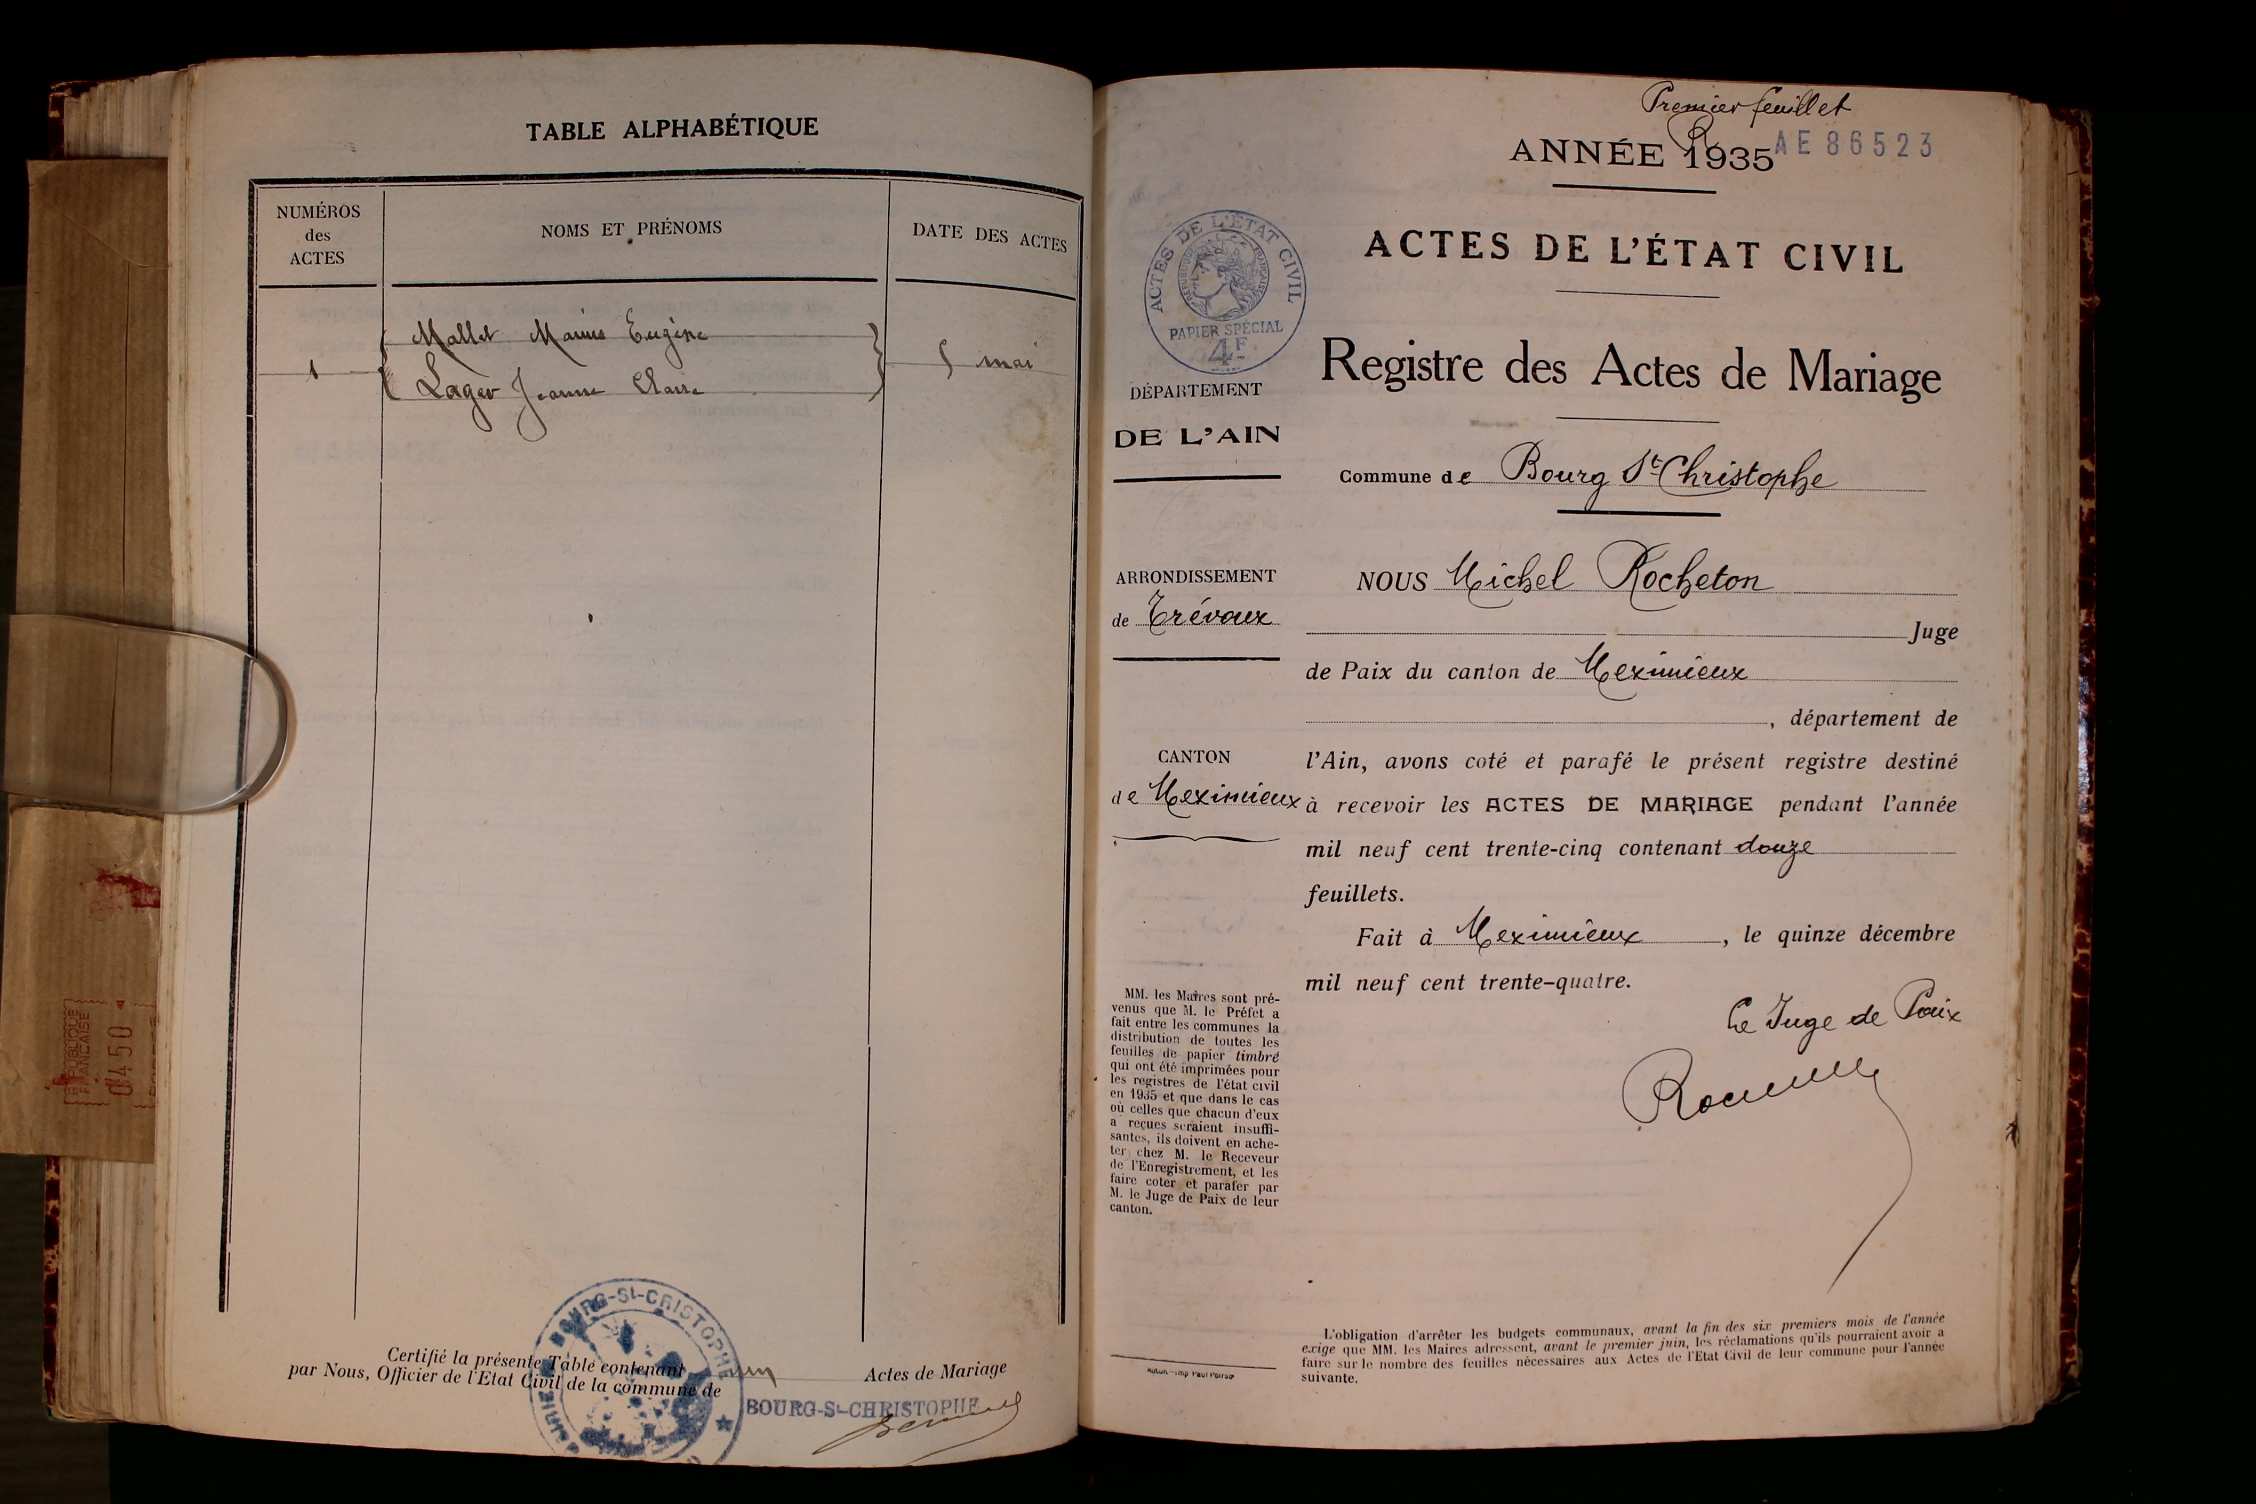 TABLE ALPHABÉTIQUE
NUMÉROS
des
ACTES
NOMS ET PRÉNOMS
DATE DES ACTES
Mallet Marius Eugène
1
Lager Jeanne Claire
5 mai
BOURG-St-CRISTOPHE
Certifié la présente Table contenant un Actes de Mariage
par Nous, Officier de l'Etat Civil de la commune de
BOURG-St-CHRISTOPHE
RÉPUBLIQUE
FRANÇAISE
0450
Premier feuillet
R
ANNÉE 1935
AE 86523
ACTES DE L'ÉTAT CIVIL
ACTES DE L'ÉTAT CIVIL
RÉPUBLIQUE FRANÇAISE
PAPIER SPÉCIAL
4F
Registre des Actes de Mariage
DÉPARTEMENT
DE L'AIN
Commune de Bourg St Christophe
ARRONDISSEMENT
de Trévoux
NOUS Michel Rocheton
Juge
de Paix du canton de Meximieux
, département de
CANTON
de Meximieux
l'Ain, avons coté et parafé le présent registre destiné
à recevoir les ACTES DE MARIAGE pendant l'année
mil neuf cent trente-cinq contenant douze
feuillets.
Fait à Meximieux, le quinze décembre
mil neuf cent trente-quatre.
Le Juge de Paix
MM. les Maires sont pré-
venus que M. le Préfet a
fait entre les communes la
distribution de toutes les
feuilles de papier timbré
qui ont été imprimées pour
les registres de l'état civil
en 1935 et que dans le cas
où celles que chacun d'eux
a reçues seraient insuffi-
santes, ils doivent en ache-
ter chez M. le Receveur
de l'Enregistrement, et les
faire coter et parafer par
M. le Juge de Paix de leur
canton.
L'obligation d'arrêter les budgets communaux, avant la fin des six premiers mois de l'année
exige que MM. les Maires adressent, avant le premier juin, les réclamations qu'ils pourraient avoir a
faire sur le nombre des feuilles nécessaires aux Actes de l'Etat Civil de leur commune pour l'année
suivante.